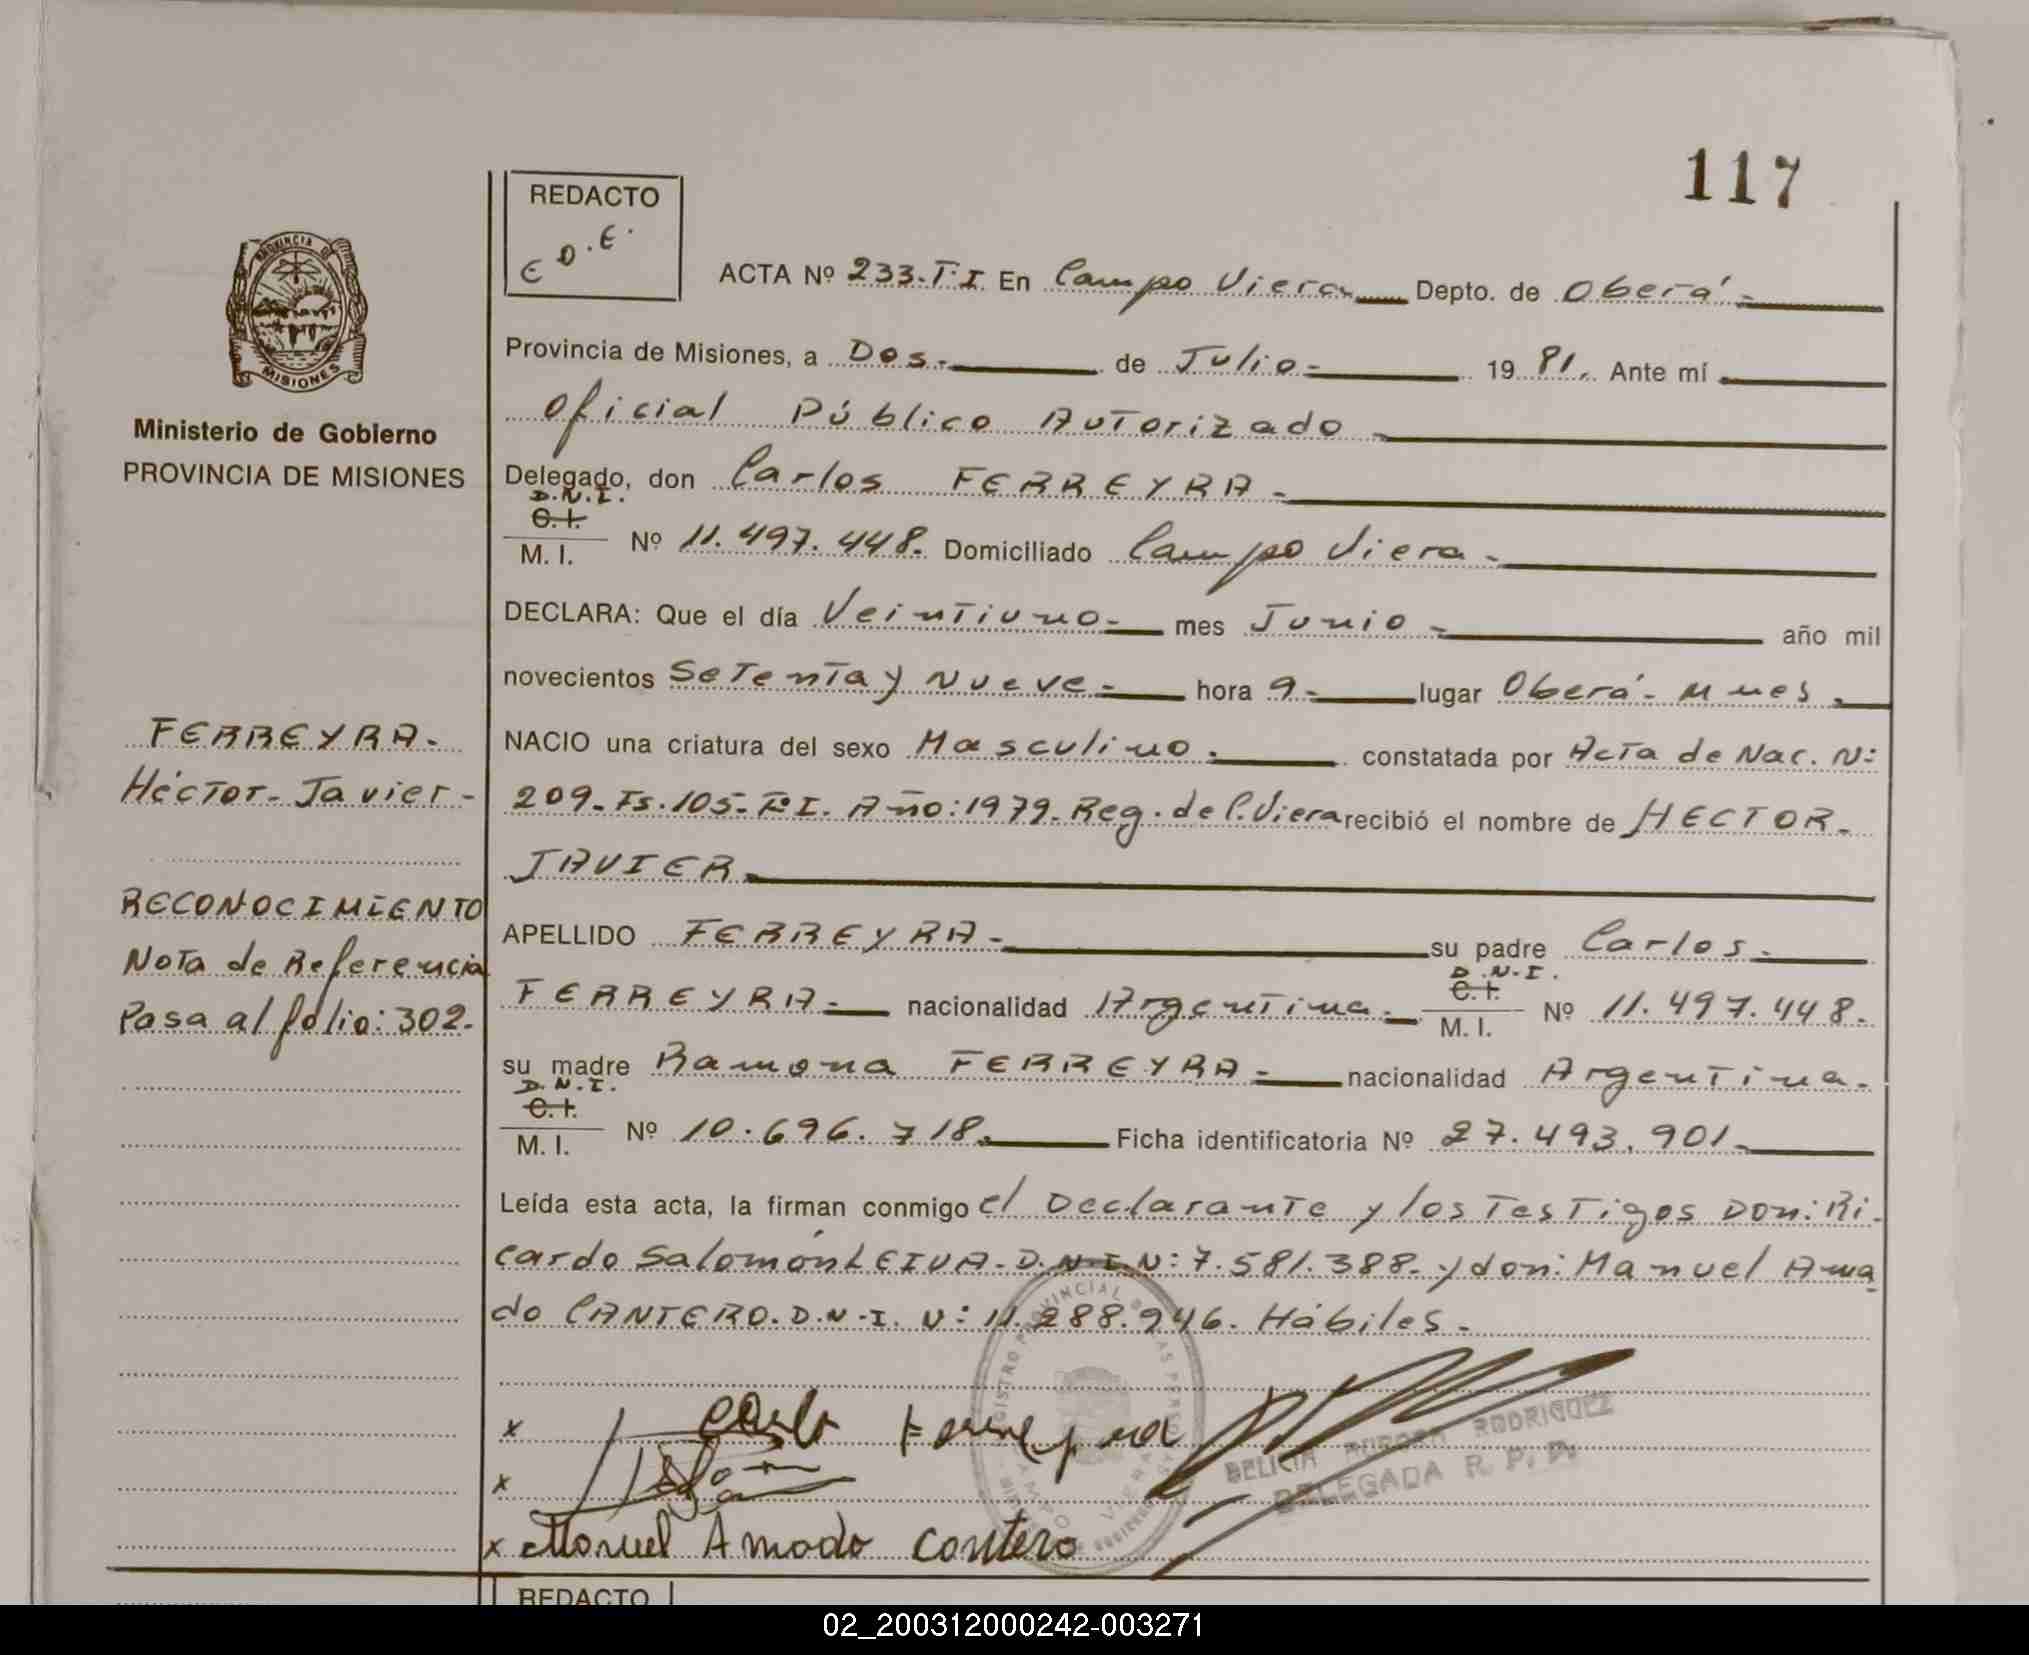 117
REDACTO
E D.E.
PROVINCIA DE
MISIONES
Ministerio de Gobierno
PROVINCIA DE MISIONES
ACTA Nº 233.T.I. En Campo Viera Depto. de Oberá-
Provincia de Misiones, a Dos.- de Julio.- 1981. Ante mí
Oficial Público Autorizado-
Delegado, don Carlos FERREYRA-
D.N.I.
C.I.
M. I. Nº 11.497.448. Domiciliado Campo Viera-
DECLARA: Que el día Veintiuno- mes Junio- año mil
novecientos Setenta y Nueve- hora 9- lugar Oberá- Mnes.
NACIO una criatura del sexo Masculino. constatada por Acta de Nac. N:
209-Fs.105-Tº I. Año:1979-Reg. de C.Viera recibió el nombre de HECTOR-
JAVIER-
APELLIDO FERREYRA- su padre Carlos-
D.N.I.
FERREYRA- nacionalidad Argentina- C.I. M. I. Nº 11.497.448.
su madre Ramona FERREYRA- nacionalidad Argentina-
D.N.I.
C.I.
M. I. Nº 10.696.718. Ficha identificatoria Nº 27.493.901-
Leída esta acta, la firman conmigo el Declarante y los Testigos Don: Ri-
cardo Salomón LEIVA-D.N.I.N: 7.581.388- y don: Manuel Ama
do CANTERO. D.N.I. N: 11.288.946. Hábiles.-
FERREYRA-
Héctor-Javier-
RECONOCIMIENTO
Nota de Referencia
Pasa al folio: 302-
x Carlo Ferreyra
x
x Manuel Amado Cantero
REGISTRO PROVINCIAL DE LAS PERSONAS
CAMPO VIERA
DELICIA AURORA RODRIGUEZ
DELEGADA R. P. P.
REDACTO
02_200312000242-003271